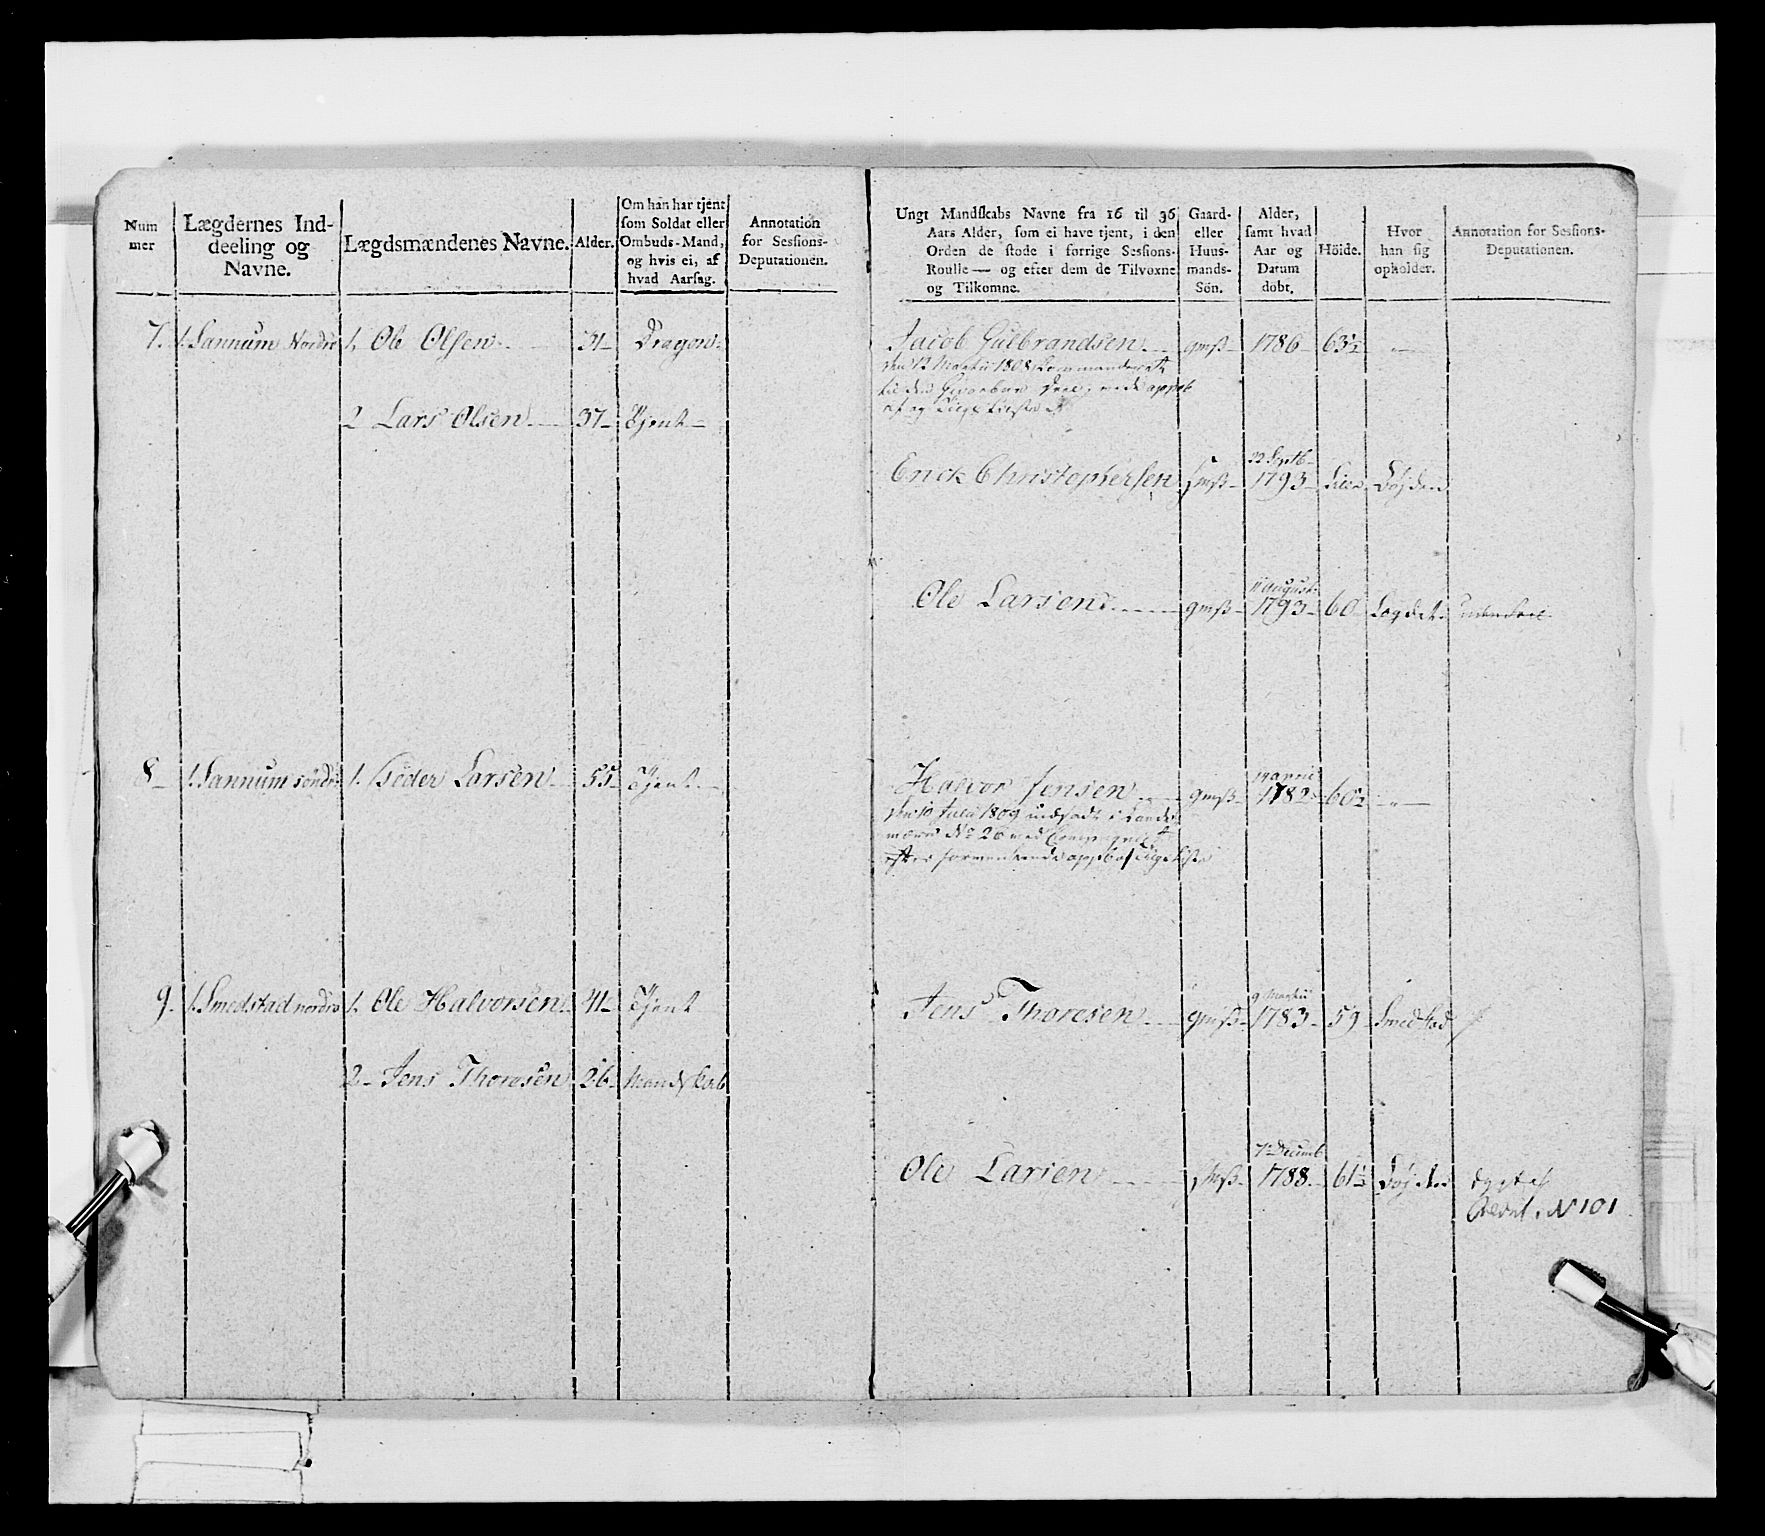 Num
mer
Lægdernes Ind-
deeling og
Navne.
Lægdsmændenes Navne.
Alder.
Om han har tjent
som Soldat eller
Ombuds-Mand,
og hvis ei, af
hvad Aarsag.
Annotation
for Sessions-
Deputationen.
Ungt Mandskabs Navne fra 16 til 36
Aars Alder, som ei have tjent, i den
Orden de stode i forrige Sessions-
Roulle — og efter dem de Tilvoxne
og Tilkomne.
Gaard-
eller
Huus-
mands-
Sön.
Alder,
samt hvad
Aar og
Datum
döbt.
Höide.
Hvor
han sig
opholder.
Annotation for Sessions-
Deputationen.
7. 1. Sannum Nordre 1. Ole Olsen 31 Dragon
2 Lars Olsen 37 Tjent
8 1. Sannum söndre 1. Peder Larsen 55 Tjent
9. 1. Smedstad nordre 1. Ole Halvorsen 41 Tjent
2 Jens Thoresen 26 Mandskab
Jacob Gulbrandsen gmß 1786 63½ "
den 12 Martii 1808 Commanderet
af og
22 Septb
Erick Christophersen 1793 Lier
11 August
Ole Larsen gmß 1793 60 Lægdet
Halvor Jensen gmß 19 April 1782 60½ "
den 10 Julii 1809 indsadt i
No 26 ved Compagniet
efter
9 Martii
Jens Thoresen gmß 1783 59 Smedstad
7 Decemb
Ole Larsen 1788 61½
No 101